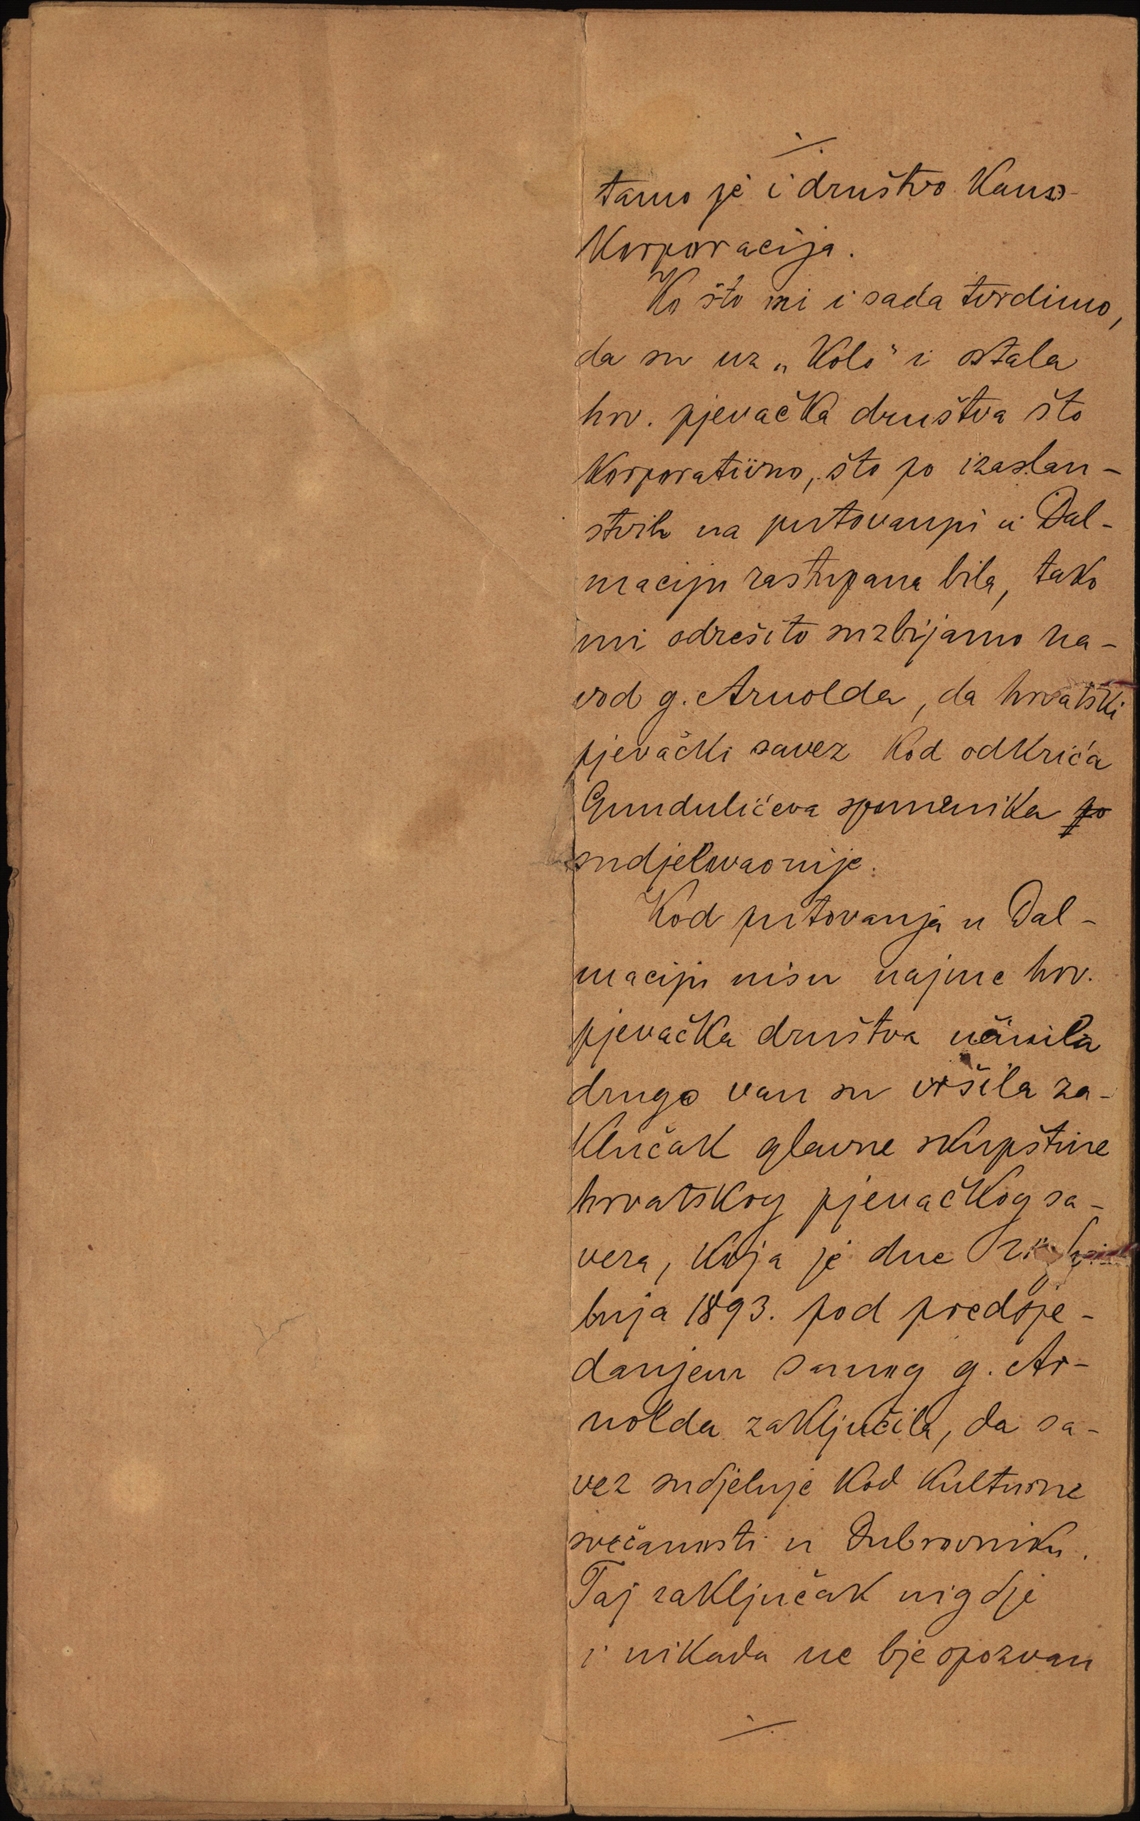 tamo je i društvo kano
korporacija.
Ko što mi i sada tvrdimo,
da su uz „Kolo“ i ostala
hrv. pjevačka društva što
korporativno, što po izaslan-
stvih na putovanju u Dal-
maciju zastupana bila, tako
mi odrešito suzbijamo na-
vod g. Arnolda, da hrvatski
pjevački savez kod odkrića
Gundulićeva spomenika
sudjelovao nije.
Kod putovanja u Dal-
maciju nisu najme hrv.
pjevačka društva učinila
drugo van su vršila za-
ključak glavne skupštine
hrvatskog pjevačkog sa-
veza, koja je dne
bnja 1893. pod predsje-
danjem samog g. Ar-
nolda zaključila, da sa-
vez sudjeluje kod kulturne
svečanosti u Dubrovniku.
Taj zaključak nigdje
i nikada ne bje opozvan